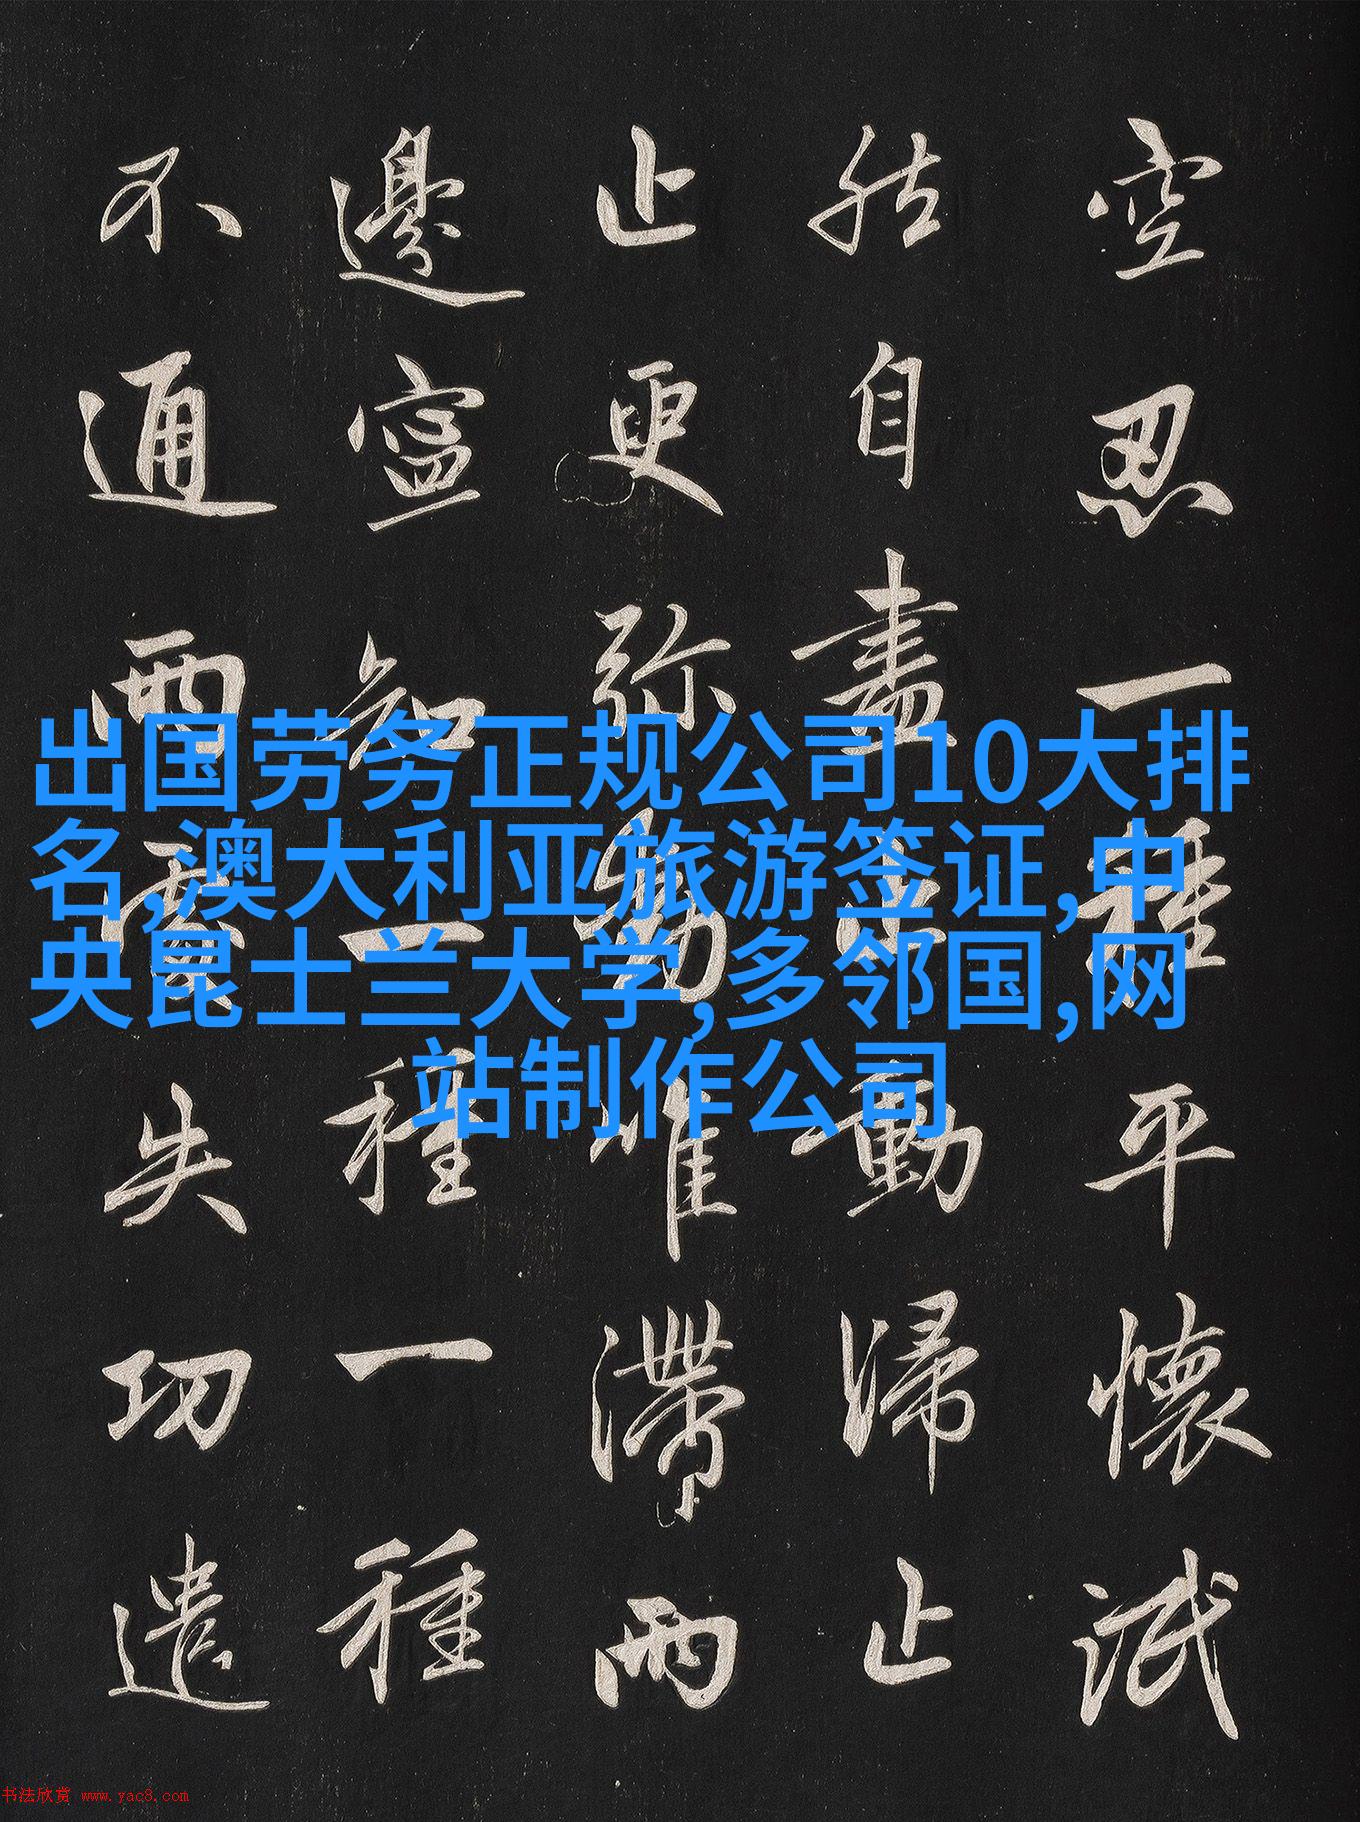 空忍一種平懷泯
然自盡止動歸止
止更弥動唯滯兩
邊寧知一種一種
不通兩處失功遣
出国劳务正规公司10大排
名,澳大利亚旅游签证,中
央昆士兰大学,多邻国,网
站制作公司
书法欣赏 www.yac8.com